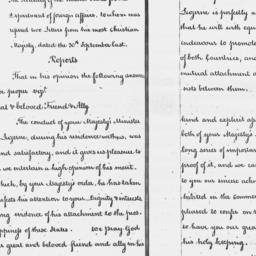 Department of foreign affairs, to whom was
referred two Letters from his most Christian
Majesty, dated the 30th September last.
Reports
That in his opinion the following answer
be proper viz!
Great & beloved Friend & Ally
The conduct of your Majesty's Minister
Luzerne, during his residence with us, was
and satisfactory, and it gives us pleasure to
we entertain a high opinion of his merit.
which, by your Majesty's orders, he has taken
his attention to your Dignity & interests
evidence of his attachment to the
happiness of these States. We pray God
great and beloved friend and ally in his
Luzerne is perfectly
that he will with equal
endeavour to promote
of both Countries, and
mutual attachment
sists between them.
kind and explicit
both of your Majesty's
long series of important
proof of it, and we can
to you our sincere
hibited in the commen
pleased to confer on
to have you our great
his holy keeping.